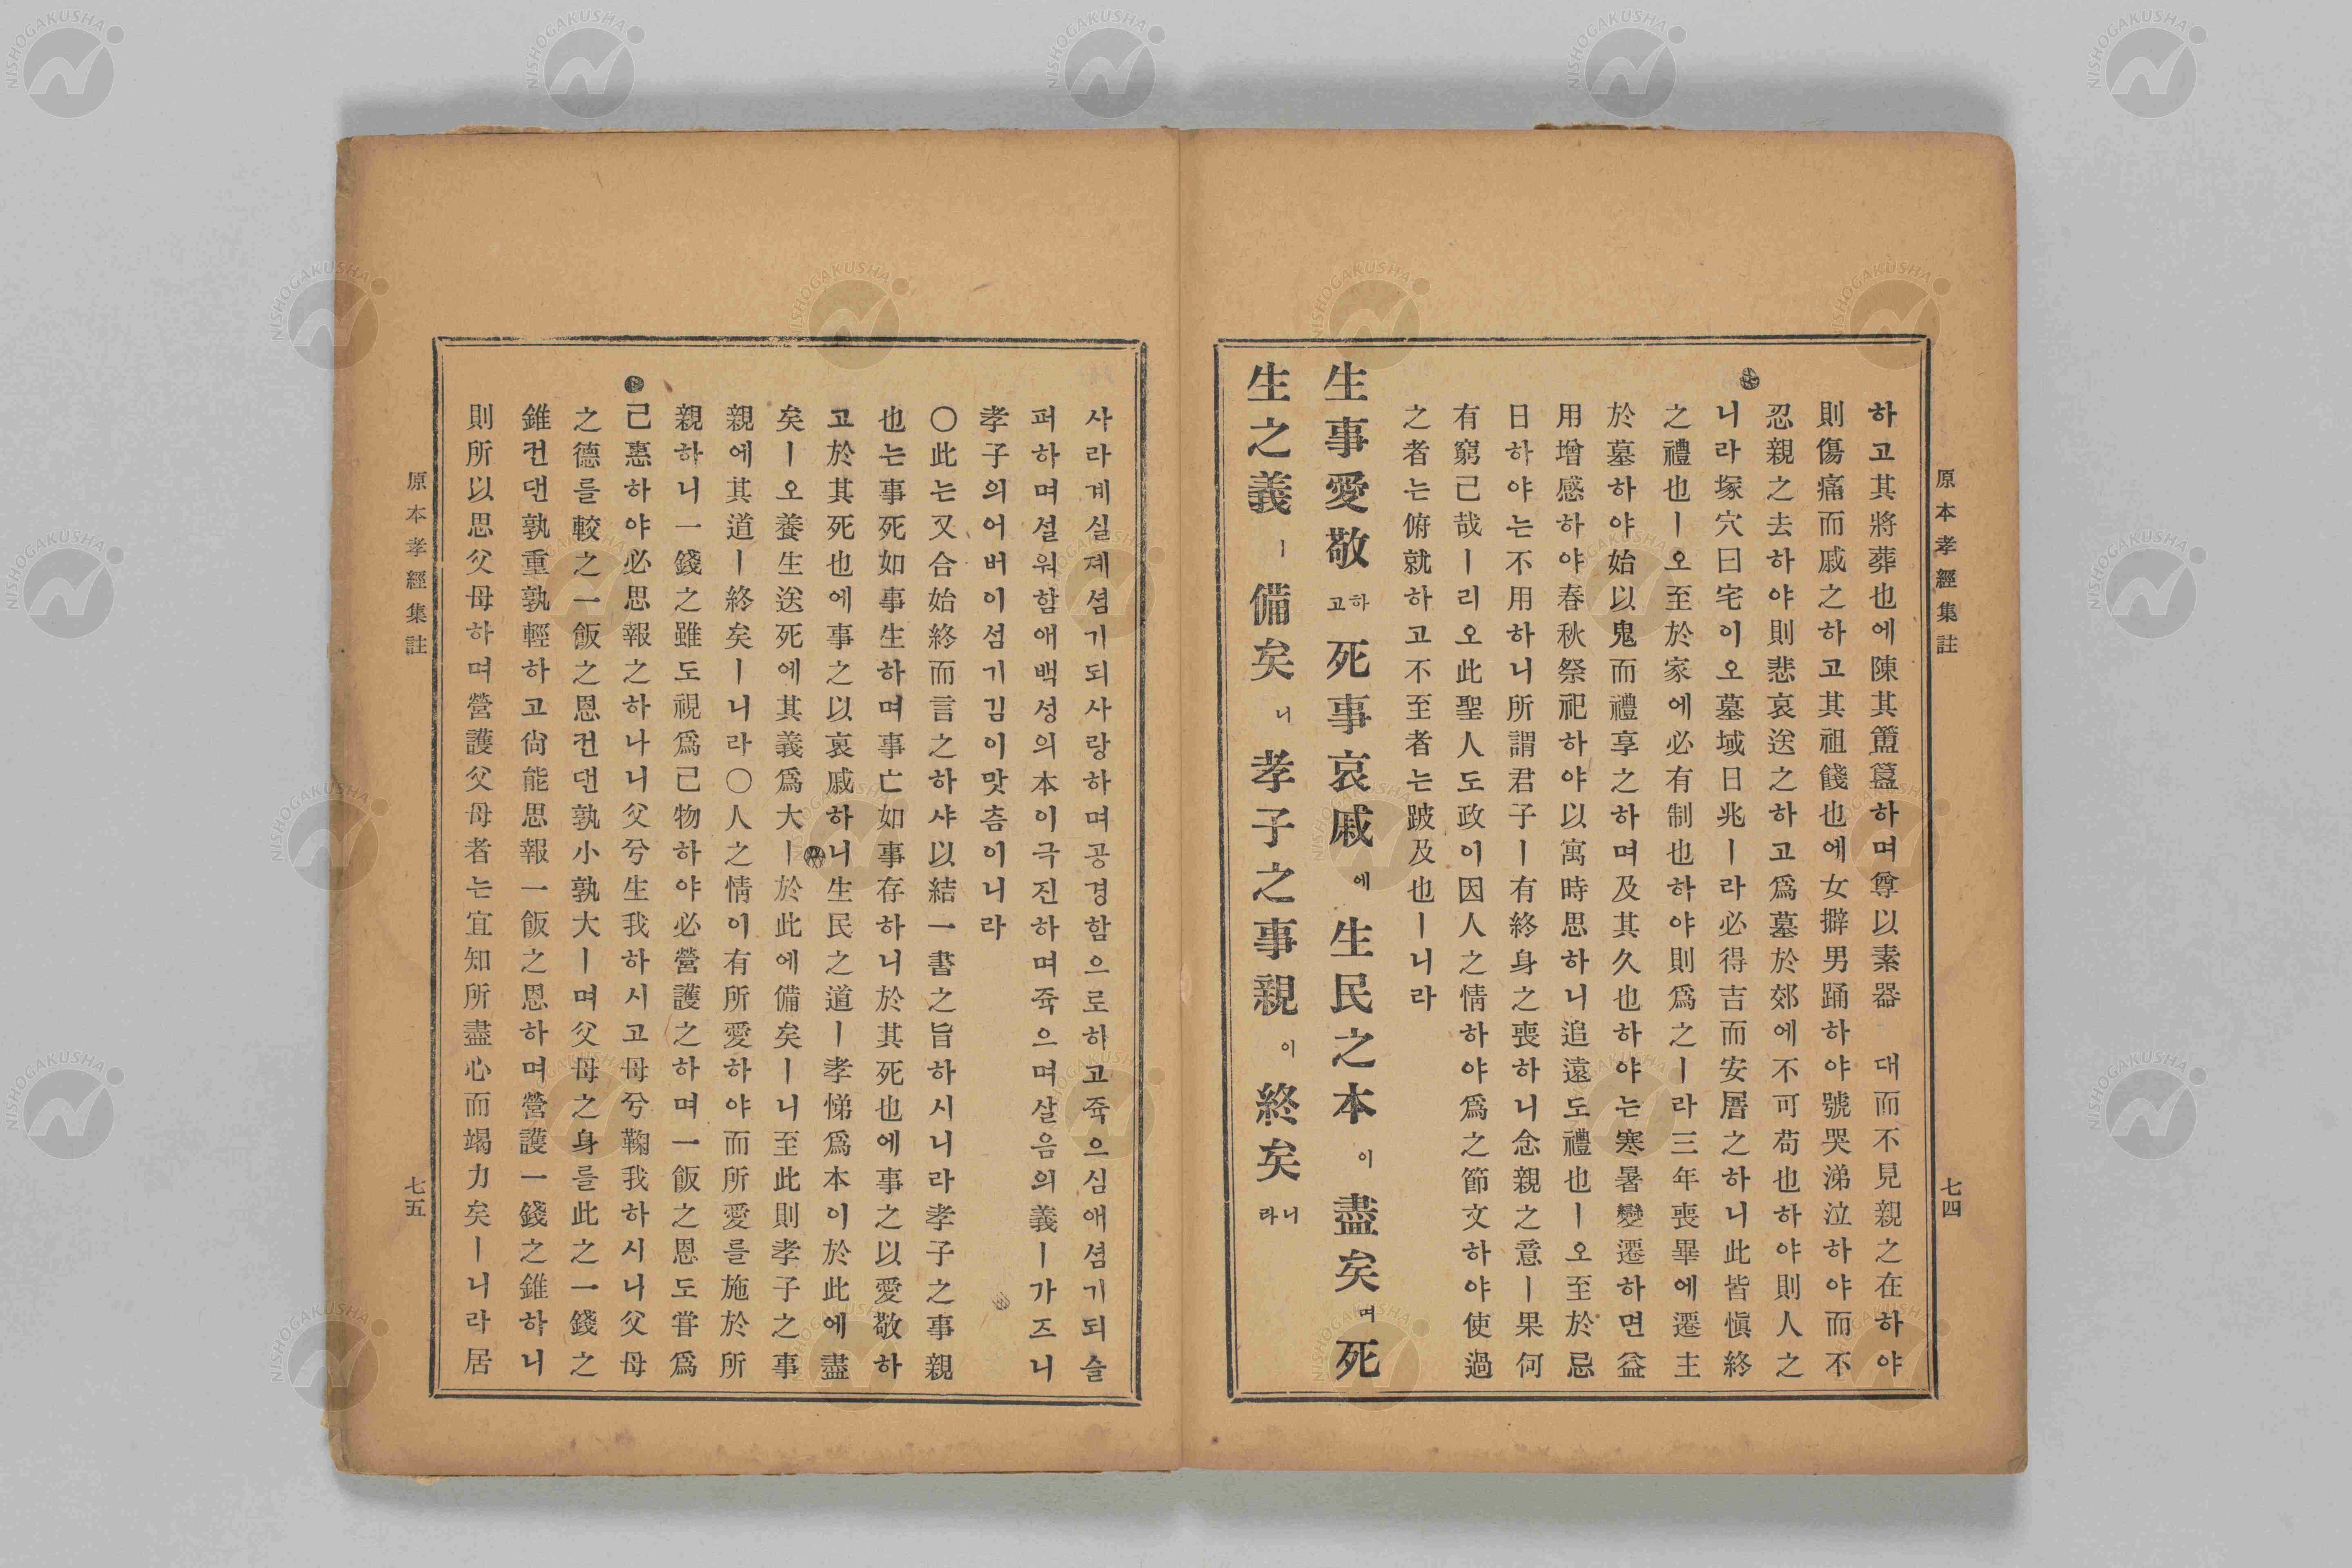 原本孝經集註
七四
하고其將葬也에陳其簠簋하며尊以素器 대而不見親之在하야
則傷痛而戚之하고其祖餞也에女擗男踊하야號哭涕泣하야而不
忍親之去하야則悲哀送之하고爲墓於郊에不可苟也하야則人之
니라塚穴曰宅이오墓域日兆ㅣ라必得吉而安厝之하니此皆愼終
之禮也ㅣ오至於家에必有制也하야則爲之ㅣ라三年喪畢에遷主
於墓하야始以鬼而禮享之하며及其久也하야는寒暑變遷하면益
用增感하야春秋祭祀하야以寓時思하니追遠도禮也ㅣ오至於忌
日하야는不用하니所謂君子ㅣ有終身之喪하니念親之意ㅣ果何
有窮己哉ㅣ리오此聖人도政이因人之情하야爲之節文하야使過
之者는俯就하고不至者는跛及也ㅣ니라
生事愛敬하고死事哀戚에生民之本이盡矣며死
生之義ㅣ備矣니孝子之事親이終矣니라
사라계실졔셤기되사랑하며공경함으로하고쥭으심애셤기되슬
퍼하며셜워함애백셩의本이극진하며쥭으며살음의義ㅣ가즈니
孝子의어버이섬기김이맛츰이니라
〇此는又合始終而言之하샤以結一書之旨하시니라孝子之事親
也는事死如事生하며事亡如事存하니於其死也에事之以愛敬하
고於其死也에事之以哀戚하니生民之道ㅣ孝悌爲本이於此에盡
矣ㅣ오養生送死에其義爲大ㅣ於此에備矣ㅣ니至此則孝子之事
親에其道ㅣ終矣ㅣ니라〇人之情이有所愛하야而所愛를施於所
親하니一錢之雖도視爲己物하야必營護之하며一飯之恩도甞爲
己惠하야必思報之하나니父兮生我하시고母兮鞠我하시니父母
之德를較之一飯之恩컨댄孰小孰大ㅣ며父母之身를此之一錢之
錐컨댄孰重孰輕하고尙能思報一飯之恩하며營護一錢之錐하니
則所以思父母하며營護父母者는宜知所盡心而竭力矣ㅣ니라居
原本孝經集註
七五